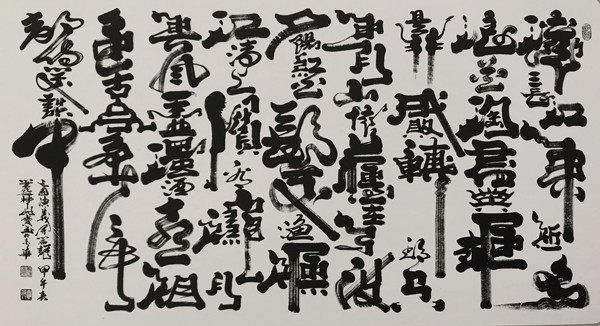 滚滚長江東逝水
浪花淘盡英雄
是非成敗轉頭空
青山依舊在幾度
夕陽紅白髮漁樵
江渚上慣看秋月
春風一壺濁酒喜相
逢古今多少事
都付笑談中
三國演義開篇詞 甲午春